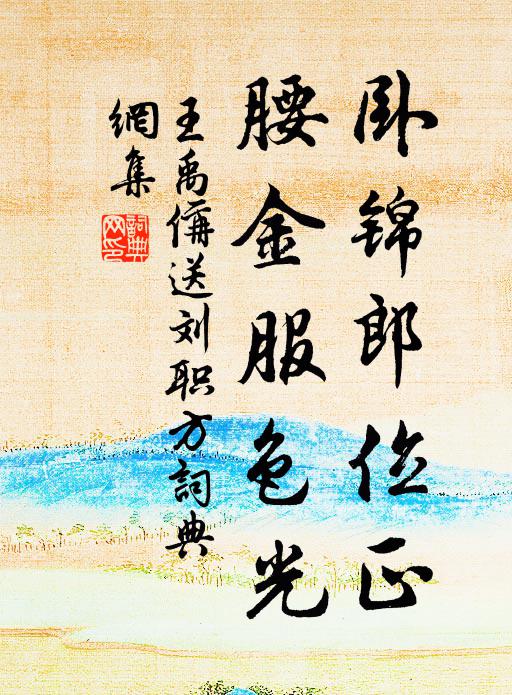 卧锦郎位正
腰金服色光
王禹偁送刘职方詞典
網集
詞典
网印